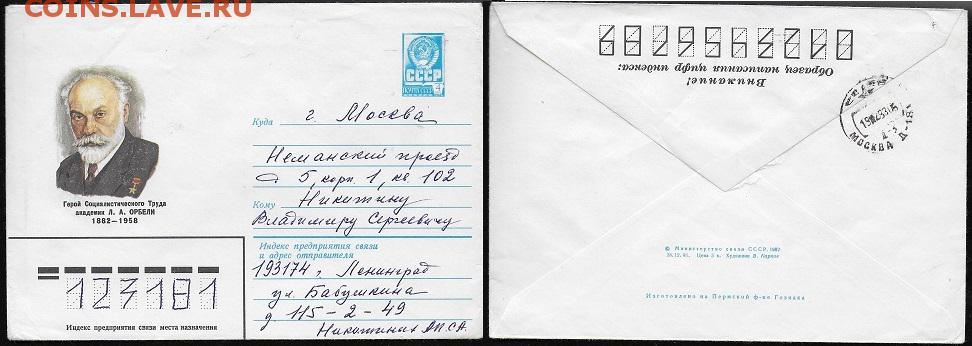 coins.lave.ru
СССР
ПОЧТА СССР
4
Куда г. Москва
Неманский проезд
д. 5, корп. 1, кв. 102
Кому Никитину
Владимиру Сергеевичу
Индекс предприятия связи
и адрес отправителя
193174, Ленинград
ул. Бабушкина
д 115-2-49
Герой Социалистического Труда
академик Л. А. ОРБЕЛИ
1882—1958
123181
Индекс предприятия связи места назначения
Внимание!
Образец написания цифр индекса:
МОСКВА Д-181
© Министерство связи СССР. 1982
Цена 5 к. Художник
Изготовлено на Пермской ф-ке Гознака